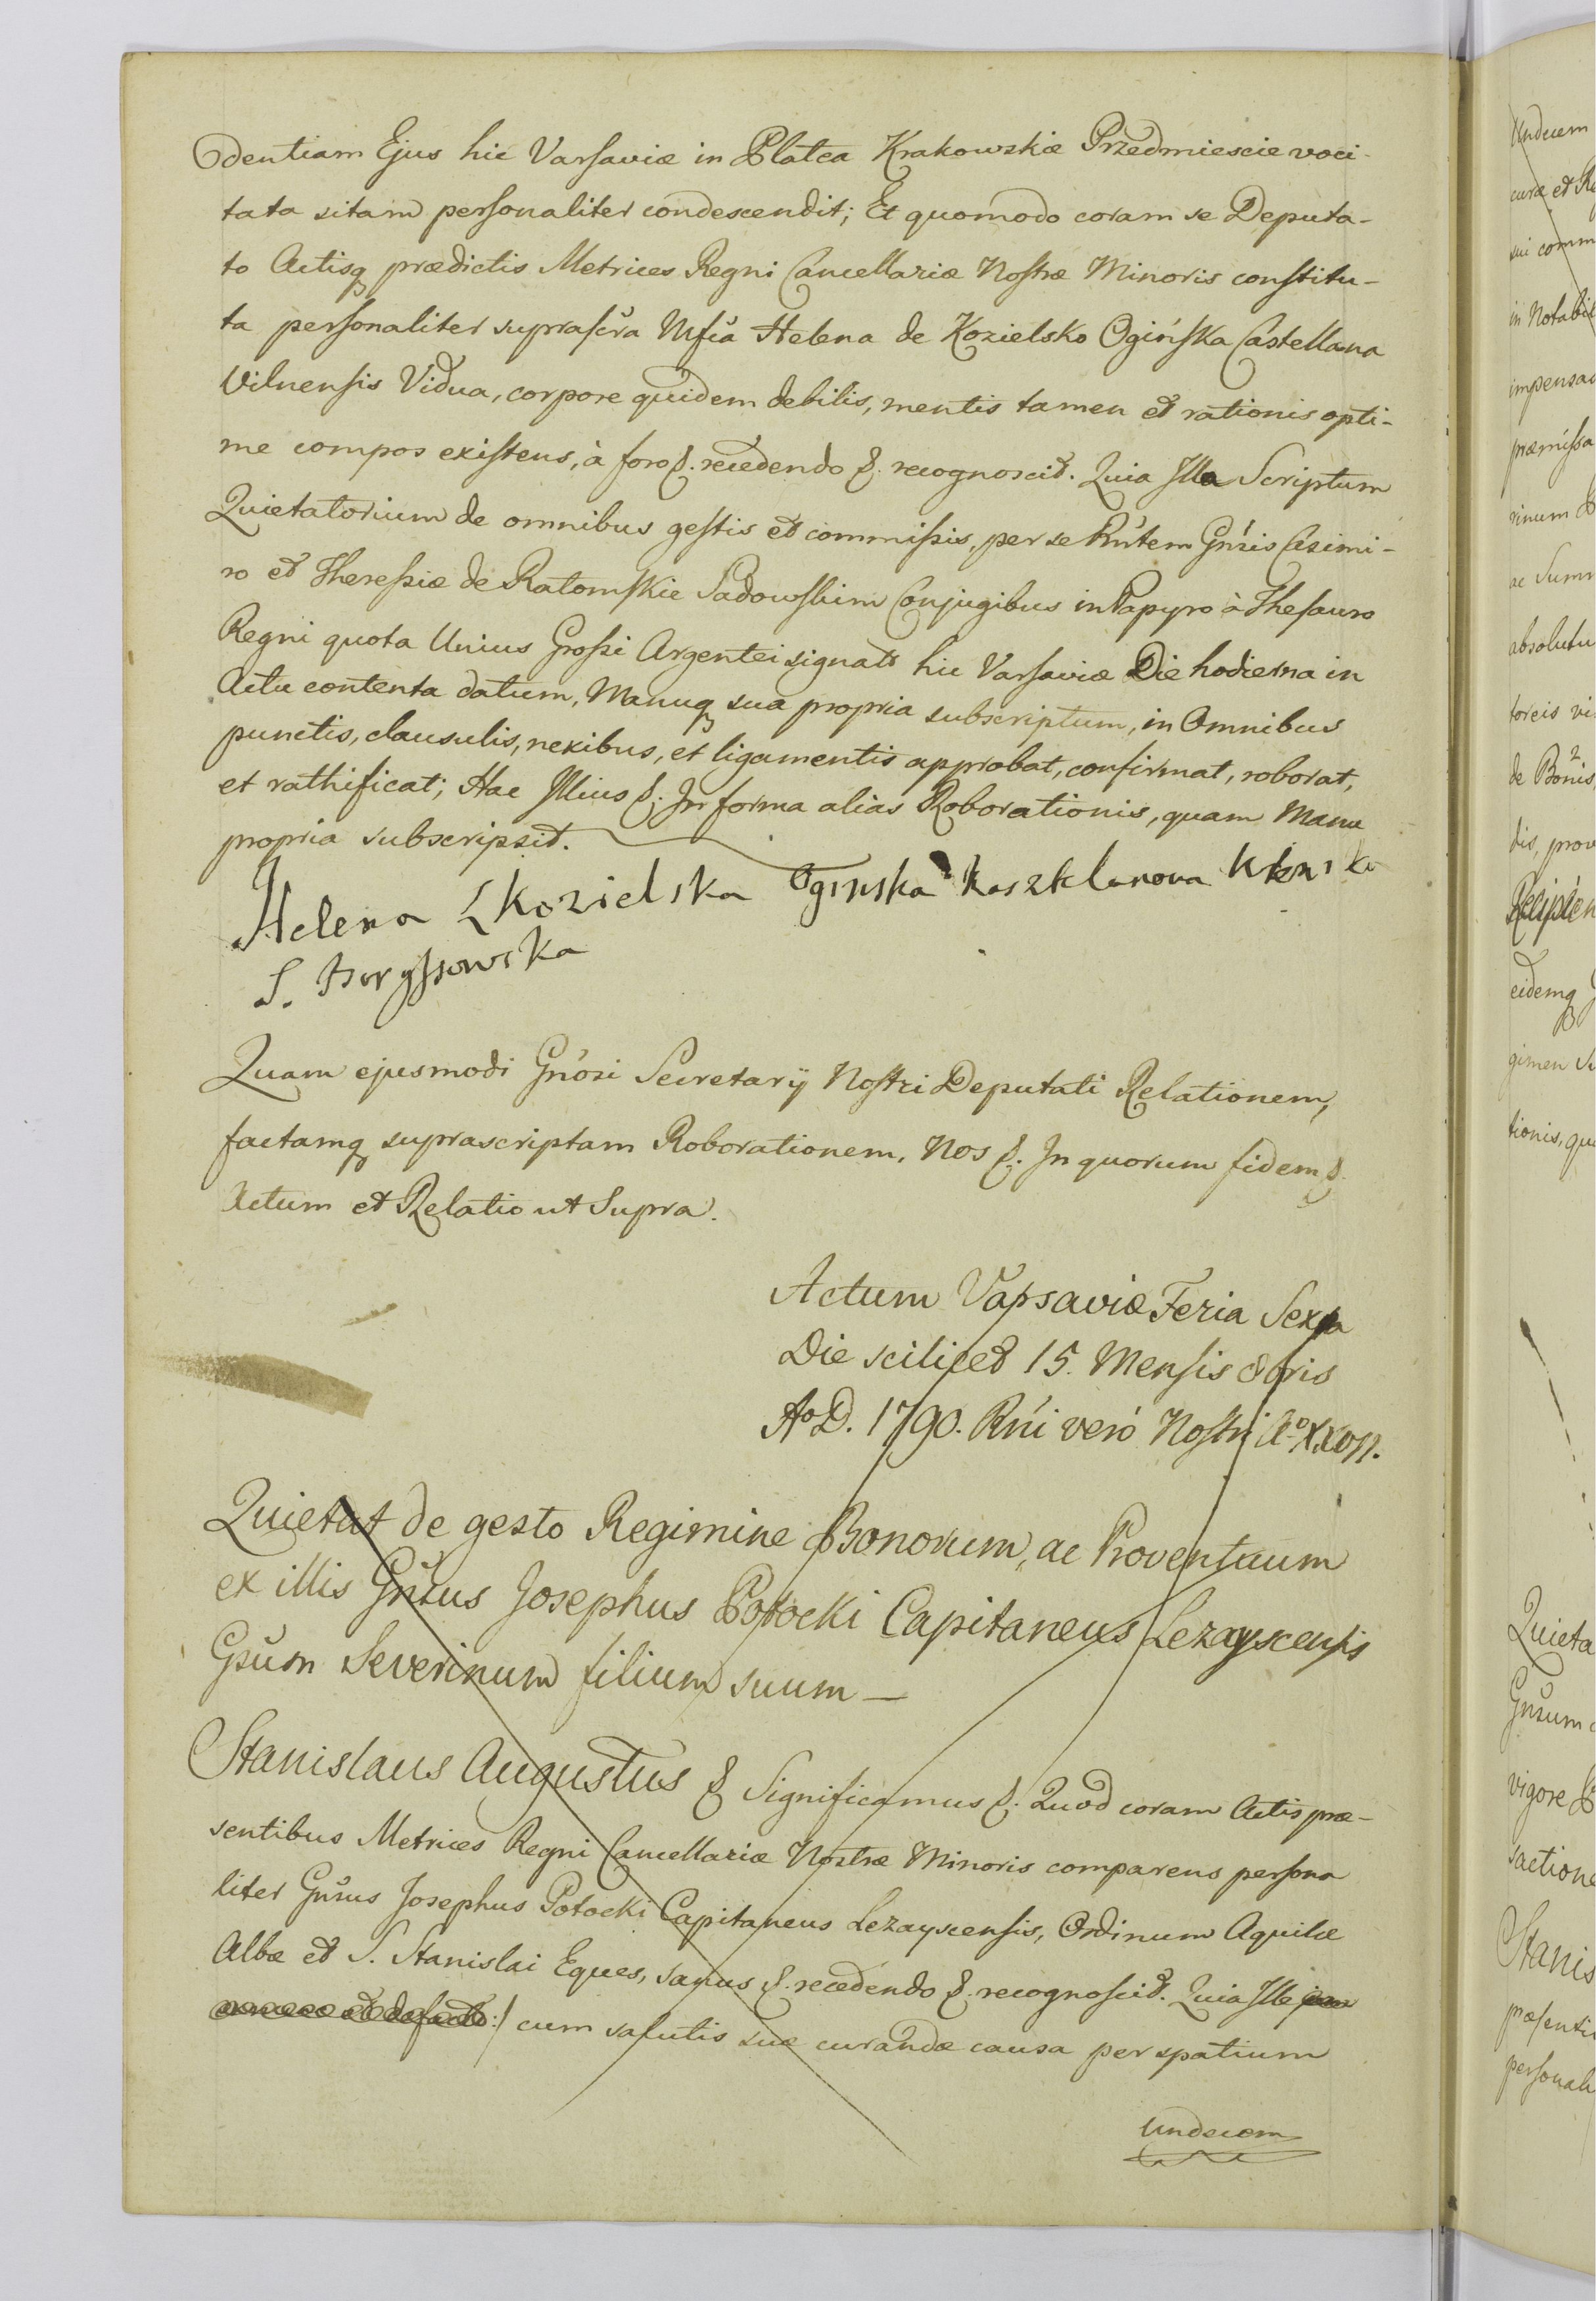 dentiam Ejus hic Varsaviæ in Platea Krakowskie Przedmiescie voci-
tata sitam personaliter condescendit; Et quomodo coram se Deputa-
to Actisq prædictis Metrices Regni Cancellariæ Nostræ Minoris constitu-
ta personaliter suprascra Mfca Helena de Kozielsko Ogińska Castellana
Vilnensis Vidua, corpore quidem debilis, mentis tamen et rationis opti-
me compos existens, à foro &. recedendo &. recognoscit. Quia Illa Scriptum
Quietatorium de omnibus gestis et commissis, per se Rntem Gnsis Casimi-
ro et Theressiæ de Ratomskie Sadowskim Conjugibus in Papyro à Thesauro
Regni quota Unius Grossi Argentei signato hic Varsaviæ Die hodierna in
Actu contenta datum, Manuq sua propria subscriptum, in Omnibus
punctis, clausulis, nexibus, et ligamentis approbat, confirmat, roborat,
et rathificat; Hac Illius &. In forma alias Roborationis, quam Manu
propria subscripsit.
Helena Z Kozielska Oginska Kasztelanowa
S. Boryssowska
Quam ejusmodi Gnosi Secretarij Nostri Deputati Relationem,
factamq suprascriptam Roborationem, Nos &. In quorum fidem &.
Actum et Relatio ut Supra.
Actum Varsaviæ Feria Sexta
Die scilicet 15. Mensis 8bris
Ao D. 1790. Rni vero Nostri Ao XXVII.
Quietat de gesto Regimine Bonorum, ac Proventuum
ex illis Gnsus Josephus Potocki Capitaneus Lezayscensis
Gsum Severinum filium suum —
Stanislaus Augustus & Significamus &. Quod coram Actis præ-
sentibus Metrices Regni Cancellariæ Nostræ Minoris comparens persona
liter Gnsus Josephus Potocki Capitaneus Lezayscensis, Ordinum Aquilæ
Albæ et S. Stanislai Eques, sanus &. recedendo &. recognoscit. Quia Ille
cum salutis suæ curandæ causa per spatium
Undecem